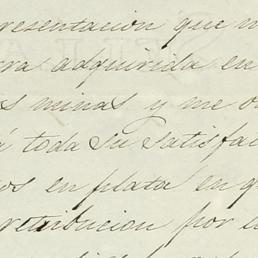 resentacion que m
rra adquirida en
s minas y me o
á toda su satisfac
os en plata en q
retribucion por l